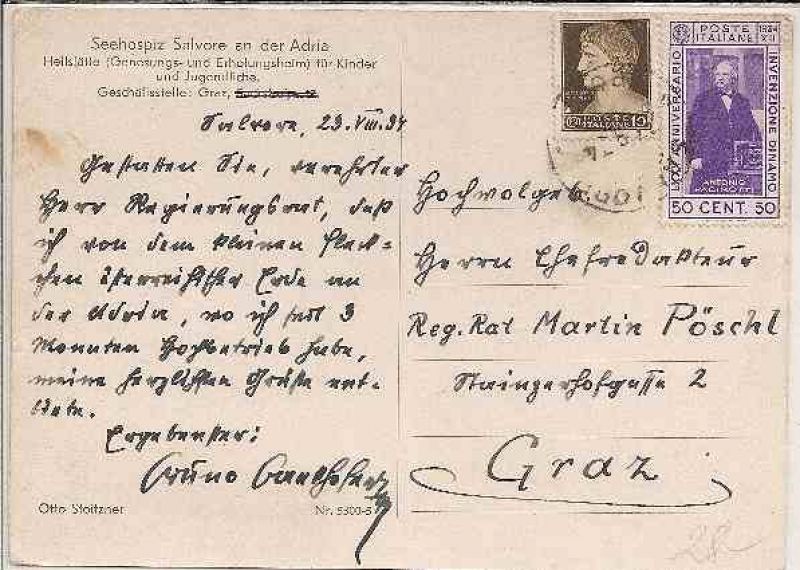 Seehospiz Salvore an der Adria
Heilstätte (Genesungs- und Erholungsheim) für Kinder
und Jugendliche.
Geschäftsstelle: Graz,
Salvore, 23. VIII. 34
Gestatten Sie, verehrter
Herr Regierungsrat, daß
ich von dem kleinen Fleck-
chen österreichischer Erde an
der Adria, wo ich seit 3
Monaten Hochbetrieb habe,
meine herzlichen Grüße ent-
biete.
Ergebenster:
Bruno
Otto Stoitzner
Nr. 5300-5
POSTE ITALIANE
10
POSTE ITALIANE
1934 XII
LXXV ANNIVERSARIO
INVENZIONE DINAMO
ANTONIO PACINOTTI
50 CENT. 50
Hochwolgeb.
Herrn Chefredakteur
Reg. Rat Martin Pöschl
Stainzerhofgasse 2
Graz